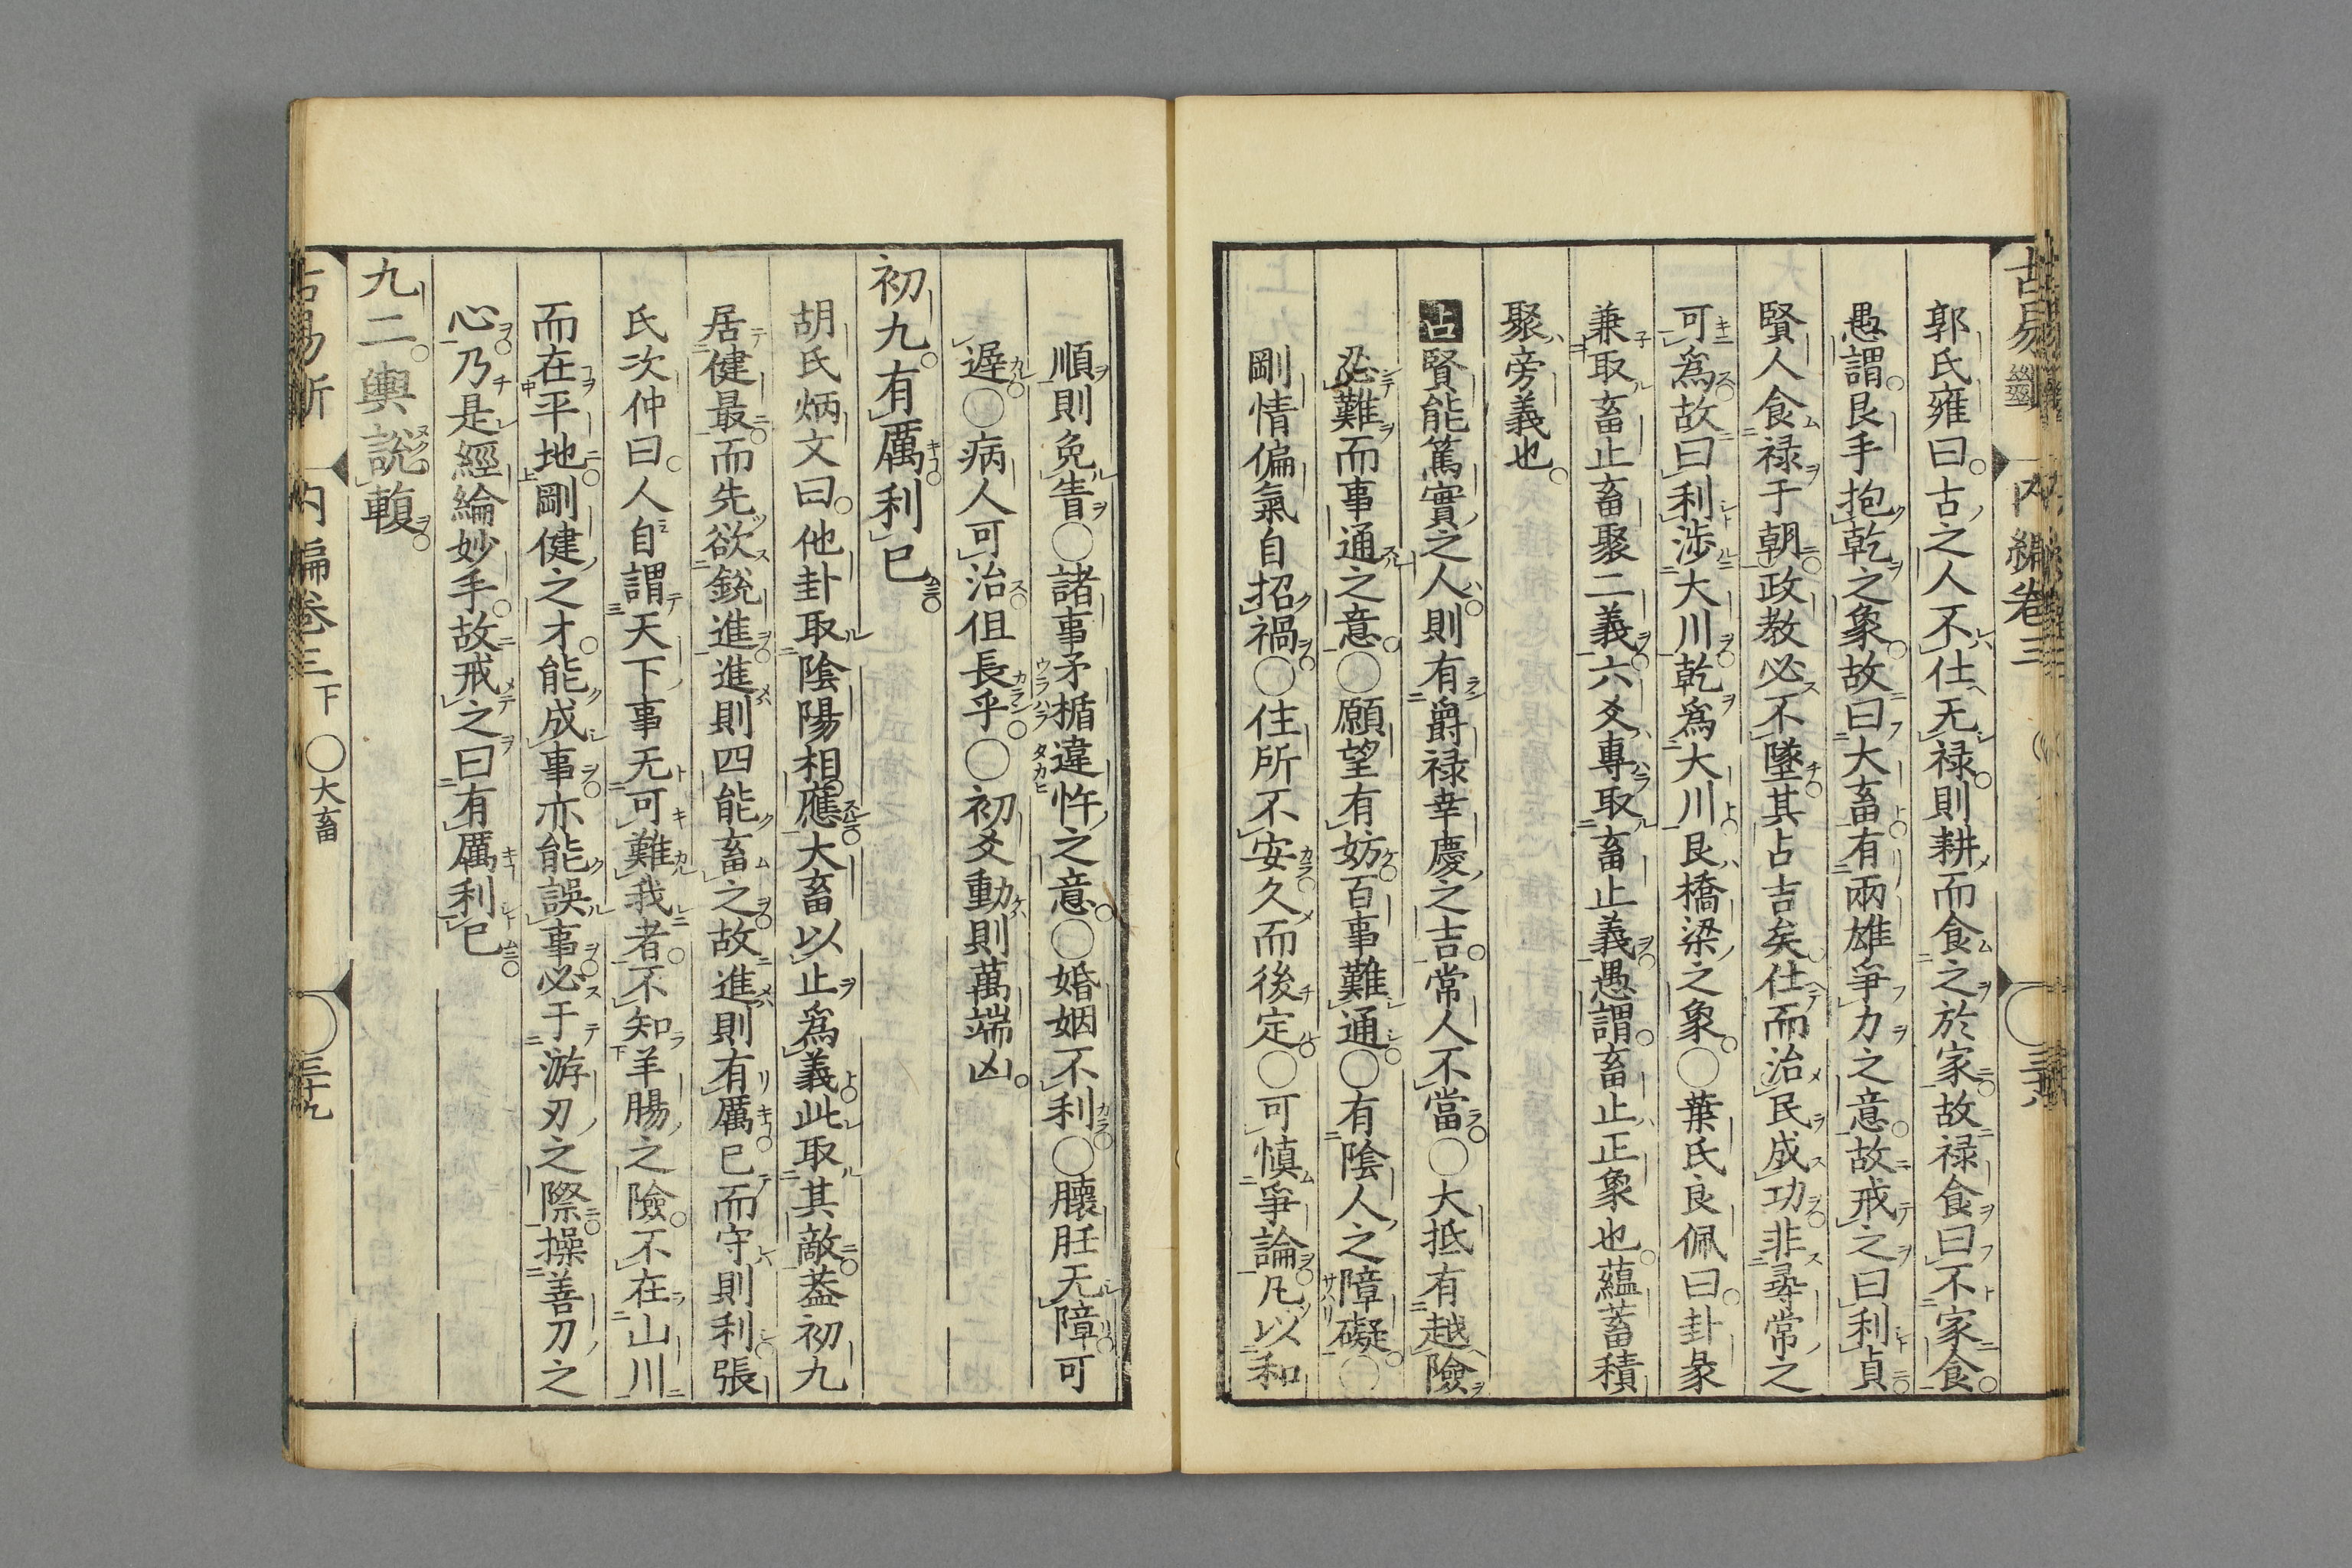 郭氏雍曰古之人不仕无禄則耕而食之於家故禄食曰不家食
愚謂艮手抱乾之象故曰大畜有兩雄爭力之意故戒之曰利貞
賢人食禄于朝政教必不墜其占吉矣仕而治民成功非尋常之
可爲故曰利渉大川乾爲大川艮橋梁之象○葉氏良佩曰卦彖
兼取畜止畜聚二義六爻專取畜止義愚謂畜止正象也蘊蓄積
聚旁義也
占賢能篤實之人則有爵禄幸慶之吉常人不當○大抵有越險
忍難而事通之意○願望有妨百事難通○有陰人之障礙○
剛情偏氣自招禍○住所不安久而後定○可慎爭論凡以和
順則免眚○諸事矛楯違忤之意○婚姻不利○臟胚无障可
遅○病人可治但長乎○初爻動則萬端凶
初九有厲利已
胡氏炳文曰他卦取陰陽相應大畜以止爲義此取其敵葢初九
居健最而先欲銳進進則四能畜之故進則有厲已而守則利張
氏次仲曰人自謂天下事无可難我者不知羊腸之險不在山川
而在平地剛健之才能成事亦能誤事必于游刃之際操善刀之
心乃是經綸妙手故戒之曰有厲利已
九二輿說輹
内編卷三下 ○大畜 三十九